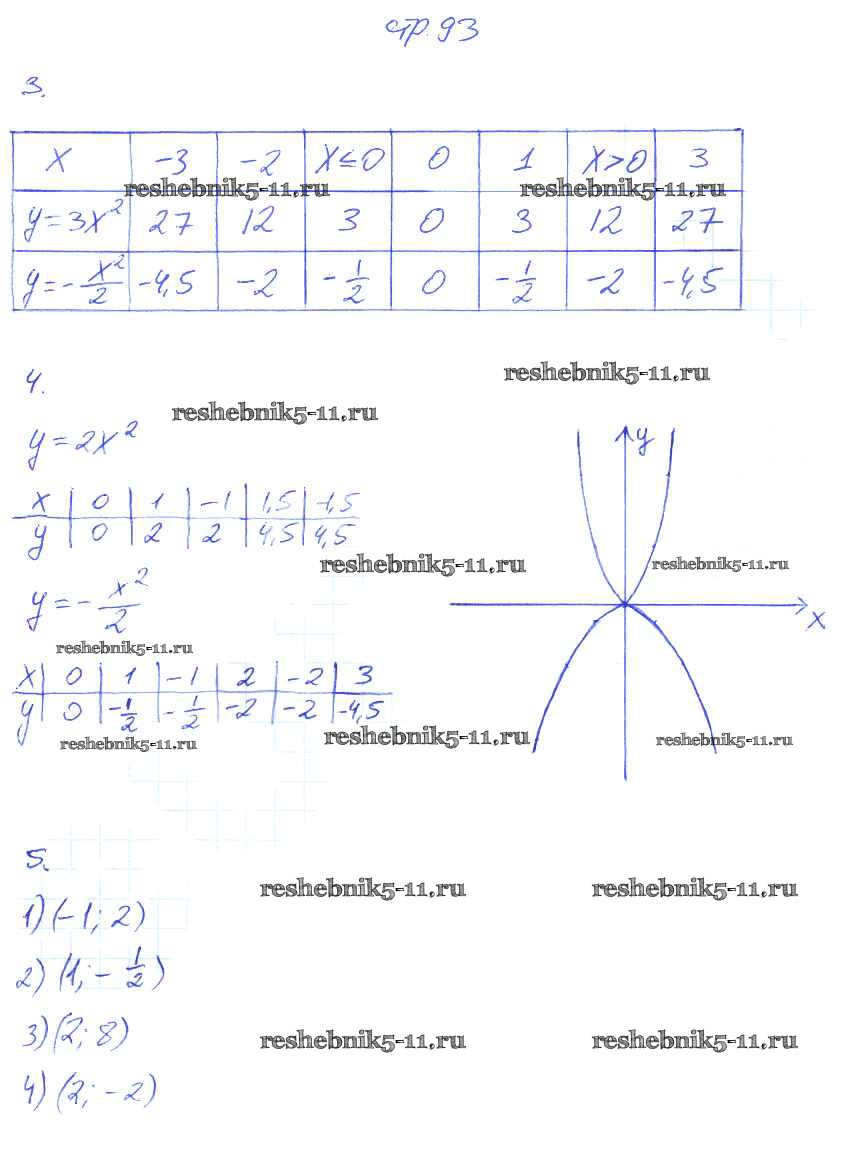 стр. 93
3.
x -3 -2 x≤0 0 1 x>0 3
reshebnik5-11.ru reshebnik5-11.ru
y=3x² 27 12 3 0 3 12 27
y=-x²/2 -4,5 -2 -1/2 0 -1/2 -2 -4,5
4.
reshebnik5-11.ru
reshebnik5-11.ru
y=2x²
y
x 0 1 -1 1,5 -1,5
y 0 2 2 4,5 4,5
reshebnik5-11.ru reshebnik5-11.ru
y=-x²/2
x
reshebnik5-11.ru
x 0 1 -1 2 -2 3
y 0 -1/2 -1/2 -2 -2 -4,5
reshebnik5-11.ru reshebnik5-11.ru reshebnik5-11.ru
5.
reshebnik5-11.ru reshebnik5-11.ru
1) (-1; 2)
2) (1; -1/2)
3) (2; 8)
reshebnik5-11.ru reshebnik5-11.ru
4) (2; -2)